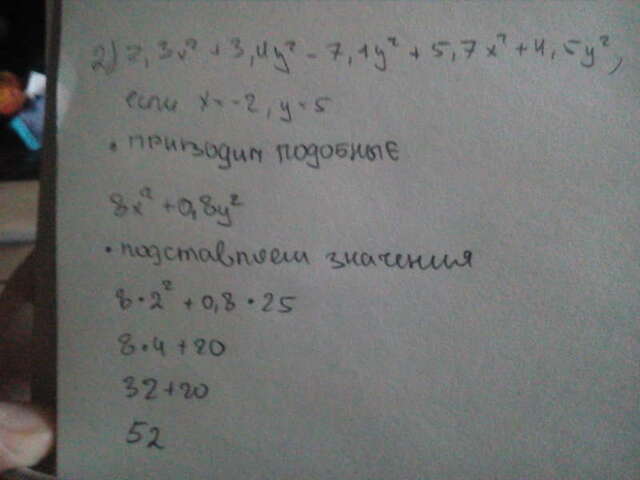 2) 2,3x² + 3,4y² - 7,1y² + 5,7x² + 4,5y²,
если x = -2, y = 5
• приводим подобные
8x² + 0,8y²
• подставляем значения
8 • 2² + 0,8 • 25
8 • 4 + 20
32 + 20
52